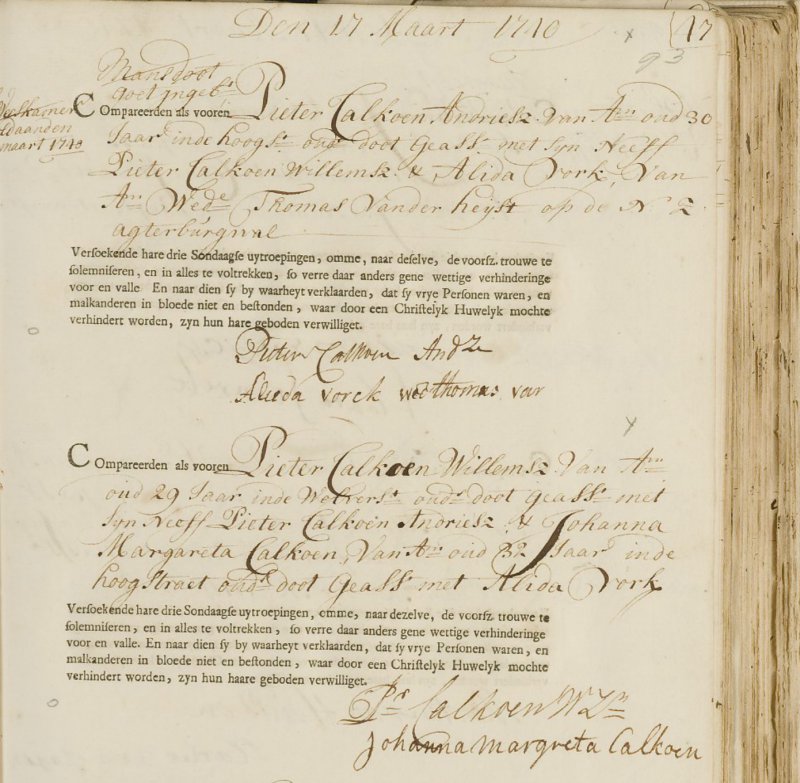 Den 17 Maart 1740
47
93
Mans doot
goet ingeb.
Weeskamer
maart 1740
Compareerden als vooren Pieter Calkoen Andriesz. Van Am oud 30
Jaar inde hoogst. oud.s doot Geasst. met syn Neeff
Pieter Calkoen Willemsz. & Alida Vork, Van
Am. Wede. Thomas Vander heyst op de N. Z
agterburgwal
Versoekende hare drie Sondaagse uytroepingen, omme, naar deselve, de voorsz. trouwe te
solemniseren, en in alles te voltrekken, so verre daar anders gene wettige verhinderinge
voor en valle. En naar dien sy by waarheyt verklaarden, dat sy vrye Personen waren, en
malkanderen in bloede niet en bestonden, waar door een Christelyk Huwelyk mochte
verhindert worden, zyn hun hare geboden verwilliget.
Pieter Calkoen Andz
Alieda vorck wed thomas van
Compareerden als vooren Pieter Calkoen Willemsz. Van Am
oud 29 Jaar inde Weeverst. oud.s doot Geasst. met
Syn Neeff Pieter Calkoen Andriesz. & Johanna
Margareta Calkoen, Van Am oud 32 Jaar inde
hoogstraet oud.s doot Geasst. met Alida Vork
Versoekende hare drie Sondaagse uytroepingen, omme, naar dezelve, de voorsz. trouwe te
solemniseren, en in alles te voltrekken, so verre daar anders gene wettige verhinderinge
voor en valle. En naar dien sy by waarheyt verklaarden, dat sy vrye Personen waren, en
malkanderen in bloede niet en bestonden, waar door een Christelyk Huwelyk mochte
verhindert worden, zyn hun haare geboden verwilliget.
Pr Calkoen WZn
Johanna margreta Calkoen